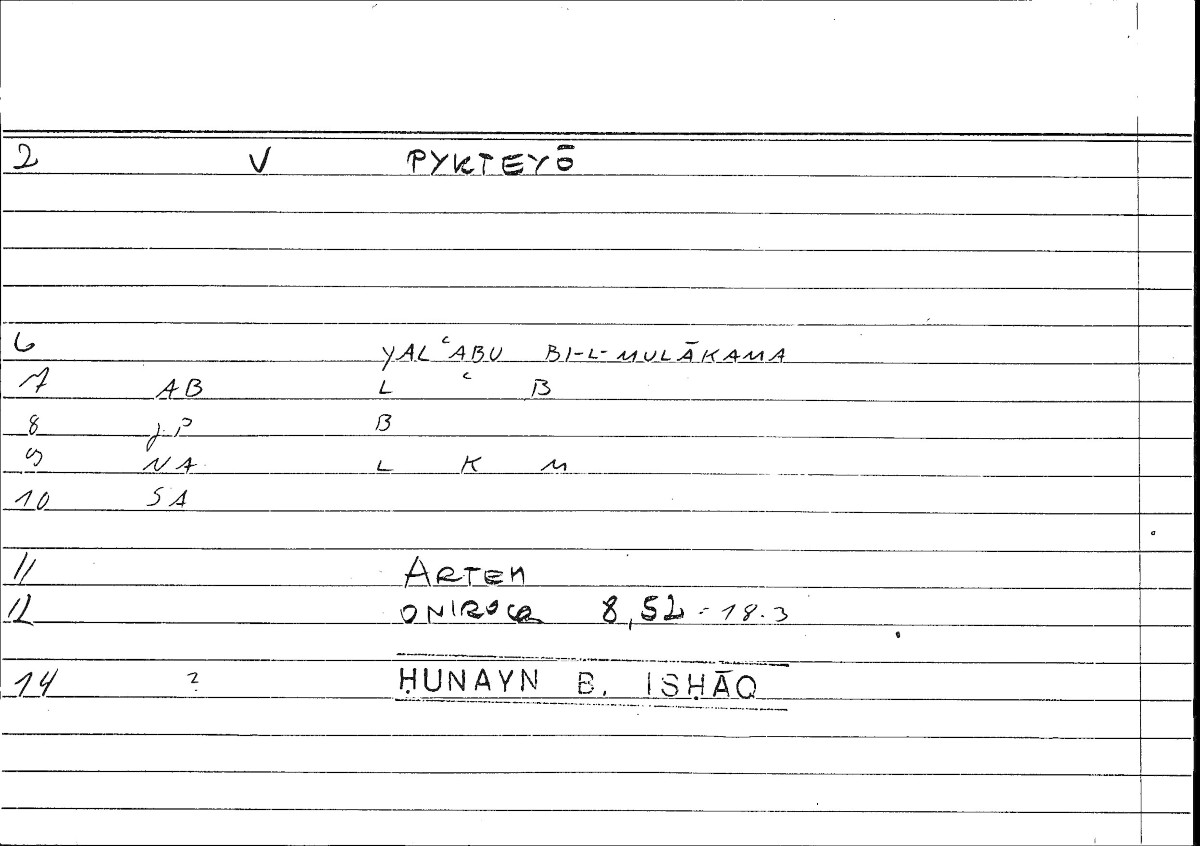 2 V PYKTEYŌ
6 YALʿABU BI-L-MULĀKAMA
7 AB L ʿ B
8 JP B
9 NA L K M
10 SA
11 ARTEM
12 ONIROCR 8,52 - 18.3
14 ? ḤUNAYN B. ISḤĀQ